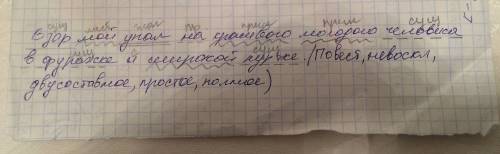 сущ мест глаг пр прил прил сущ
Взор мой упал на красивого молодого человека
сущ сущ
в фуражке и широкой куртке. (Повест, невоскл,
двусоставное, простое, полное)